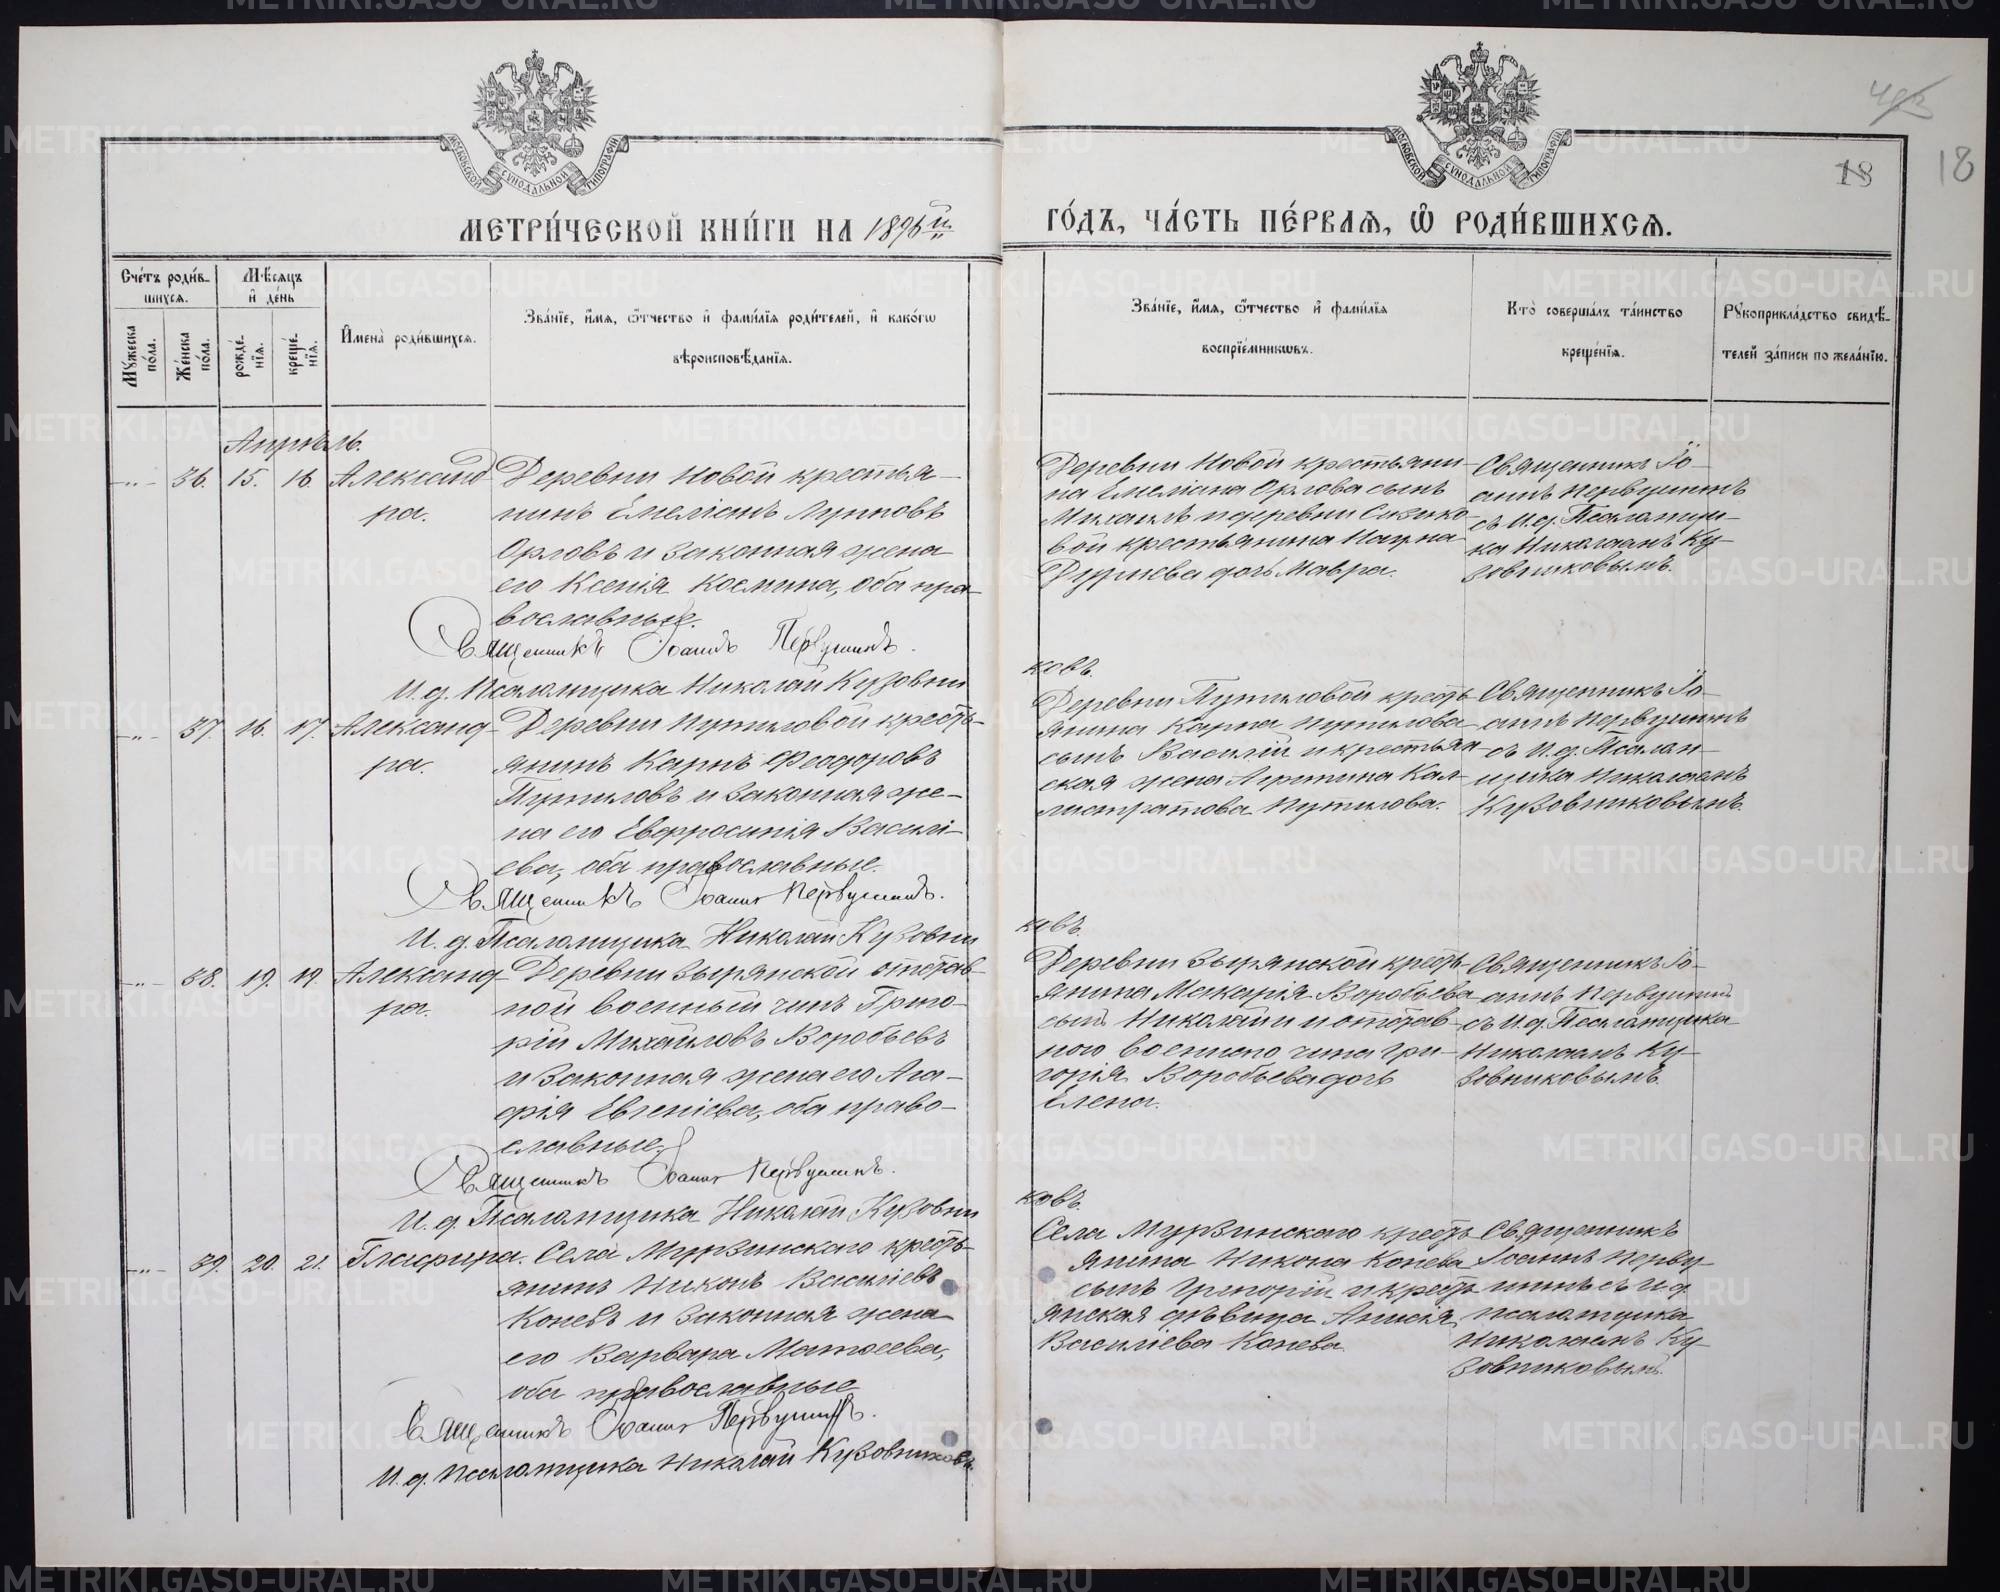 МОСКОВСКОЙ СѴНОДАЛЬНОЙ ТИПОГРАФІИ
МОСКОВСКОЙ СѴНОДАЛЬНОЙ ТИПОГРАФІИ
18
18
МЕТРИ́ЧЕСКОЙ КНИ́ГИ НА 1896й
ГО́ДЪ, ЧА́СТЬ ПЕ́РВАѦ, Ѡ҆ РОДИ́ВШИХСѦ.
Сче́тъ роди́в-
шихсѧ.
Мѣ́сѧцъ
и҆ де́нь
Мꙋ́жеска
по́ла.
Же́нска
по́ла.
рожде́-
нїѧ.
креще́-
нїѧ.
И҆мена̀ роди́вшихсѧ.
Зва́нїе, и҆́мѧ, ѻ҆́тчество и҆ фами́лїѧ роди́телей, и҆ како́гѡ
вѣроисповѣ́данїѧ.
Зва́нїе, и҆́мѧ, ѻ҆́тчество и҆ фами́лїѧ
воспрїе́мникѡвъ.
Кто̀ соверша́лъ та́инство
креще́нїѧ.
Рꙋкоприкла́дство свидѣ́-
телей за́писи по жела́нїю.
Апрѣль.
-„- 36. 15. 16. Александ
ра.
Деревни Новой крестья-
нинъ Емеліанъ Луповъ
Орловъ и законная жена
его Ксенія Космина, оба пра-
вославные.
Священникъ Іоаннъ Первушинъ.
И. д. Псаломщика Николай Кузовни
Деревни Новой крестьяни-
на Емеліана Орлова сынъ
Михаилъ и деревни Сизико-
вой крестьянина Наума
дочь Мавра.
Священникъ Іо-
аннъ Первушинъ
съ И. д. Псаломщи-
ка Николаемъ Ку-
зовниковымъ.
ковъ.
-„- 37. 16. 17. Александ-
ра.
Деревни Путиловой кресть-
янинъ Карпъ Феодоровъ
Путиловъ и законная же-
на его Евфросинія Василі-
ева, оба православные.
Священникъ Іоаннъ Первушинъ.
И. д. Псаломщика Николай Кузовни
Деревни Путиловой кресть-
янина Карпа Путилова
сынъ Василій и крестьян-
ская жена Агрипина Кал-
листратова Путилова.
Священникъ Іо-
аннъ Первушинъ
съ И. д. Псалом-
щика Николаемъ
Кузовниковымъ.
ковъ.
-„- 38. 19. 19. Александ-
ра.
Деревни Зырянской отстав-
ной военный чинъ Григо-
рій Михайловъ Воробьевъ
и законная жена его Ага-
фія Евгеніева, оба право-
славные.
Священникъ Іоаннъ Первушинъ.
И. д. Псаломщика Николай Кузовни
Деревни Зырянской кресть-
янина Макарія Воробьева
сынъ Николай и отстав-
ного военного чина Гри-
горія Воробьева дочь
Елена.
Священникъ Іо-
аннъ Первушинъ
съ И. д. Псаломщика
Николаемъ Ку-
зовниковымъ.
ковъ.
-„- 39. 20. 21. Глафира.
Села Мурзинского кресть-
янинъ Никонъ Василіевъ
Коневъ и законная жена
его Варвара Матѳеева,
оба православные.
Священникъ Іоаннъ Первушинъ.
И. д. Псаломщика Николай Кузовниковъ.
Села Мурзинского кресть
янина Никона Конева
сынъ Григорій и кресть
янская дѣвица Анисія
Василіева Конева
Священникъ
Іоаннъ Перву-
шинъ съ И. д.
псаломщика
Николаемъ Ку-
зовниковымъ.
METRIKI.GASO-URAL.RU